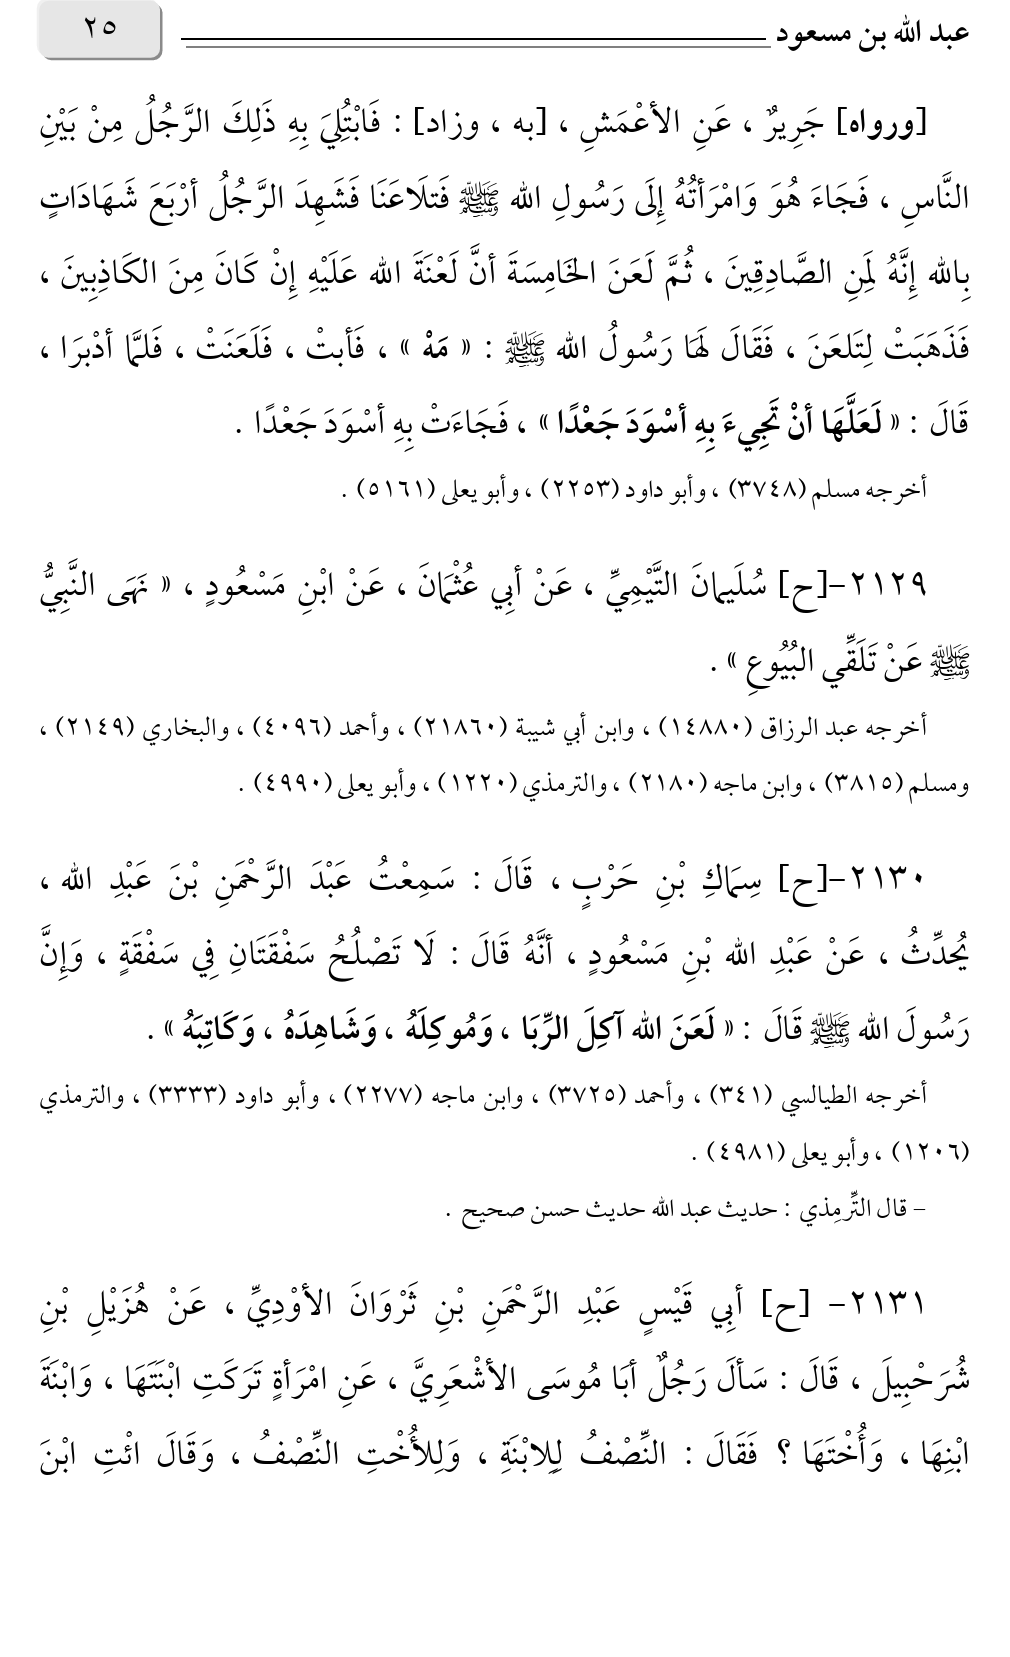 عبد الله بن مسعود ٢٥
[ورواه] جَرِيرٌ ، عَنِ الأعْمَشِ ، [به ، وزاد] : فَابْتُلِيَ بِهِ ذَلِكَ الرَّجُلُ مِنْ بَيْنِ
النَّاسِ ، فَجَاءَ هُوَ وَامْرَأتُهُ إِلَى رَسُولِ الله ﷺ فَتلَاعَنَا فَشَهِدَ الرَّجُلُ أرْبَعَ شَهَادَاتٍ
بِالله إِنَّهُ لَمِنِ الصَّادِقِينَ ، ثُمَّ لَعَنَ الخَامِسَةَ أنَّ لَعْنَةَ الله عَلَيْهِ إِنْ كَانَ مِنَ الكَاذِبِينَ ،
فَذَهَبَتْ لِتَلعَنَ ، فَقَالَ لَهَا رَسُولُ الله ﷺ : « مَهْ » ، فَأبتْ ، فَلَعَنَتْ ، فَلمَّا أدْبَرَا ،
قَالَ : « لَعَلَّهَا أنْ تَجِيءَ بِهِ أسْوَدَ جَعْدًا » ، فَجَاءَتْ بِهِ أسْوَدَ جَعْدًا .
أخرجه مسلم (٣٧٤٨) ، وأبو داود (٢٢٥٣) ، وأبو يعلى (٥١٦١) .
٢١٢٩-[ح] سُلَيمانَ التَّيْمِيِّ ، عَنْ أبِي عُثْمَانَ ، عَنْ ابْنِ مَسْعُودٍ ، « نَهَى النَّبِيُّ
ﷺ عَنْ تَلَقِّي البُيُوعِ » .
أخرجه عبد الرزاق (١٤٨٨٠) ، وابن أبي شيبة (٢١٨٦٠) ، وأحمد (٤٠٩٦) ، والبخاري (٢١٤٩) ،
ومسلم (٣٨١٥) ، وابن ماجه (٢١٨٠) ، والترمذي (١٢٢٠) ، وأبو يعلى (٤٩٩٠) .
٢١٣٠-[ح] سِمَاكِ بْنِ حَرْبٍ ، قَالَ : سَمِعْتُ عَبْدَ الرَّحْمَنِ بْنَ عَبْدِ الله ،
يُحَدِّثُ ، عَنْ عَبْدِ الله بْنِ مَسْعُودٍ ، أنَّهُ قَالَ : لَا تَصْلُحُ سَفْقَتَانِ فِي سَفْقَةٍ ، وَإِنَّ
رَسُولَ الله ﷺ قَالَ : « لَعَنَ الله آكِلَ الرِّبَا ، وَمُوكِلَهُ ، وَشَاهِدَهُ ، وَكَاتِبَهُ » .
أخرجه الطيالسي (٣٤١) ، وأحمد (٣٧٢٥) ، وابن ماجه (٢٢٧٧) ، وأبو داود (٣٣٣٣) ، والترمذي
(١٢٠٦) ، وأبو يعلى (٤٩٨١) .
– قال التِّرمِذي : حديث عبد الله حديث حسن صحيح .
٢١٣١- [ح] أبِي قَيْسٍ عَبْدِ الرَّحْمَنِ بْنِ ثَرْوَانَ الأوْدِيِّ ، عَنْ هُزَيْلِ بْنِ
شُرَحْبِيلَ ، قَالَ : سَألَ رَجُلٌ أبَا مُوسَى الأشْعَرِيَّ ، عَنِ امْرَأةٍ تَرَكَتِ ابْنَتَهَا ، وَابْنَةَ
ابْنِهَا ، وَأُخْتَهَا ؟ فَقَالَ : النِّصْفُ لِلِابْنَةِ ، وَلِلأُخْتِ النِّصْفُ ، وَقَالَ ائْتِ ابْنَ